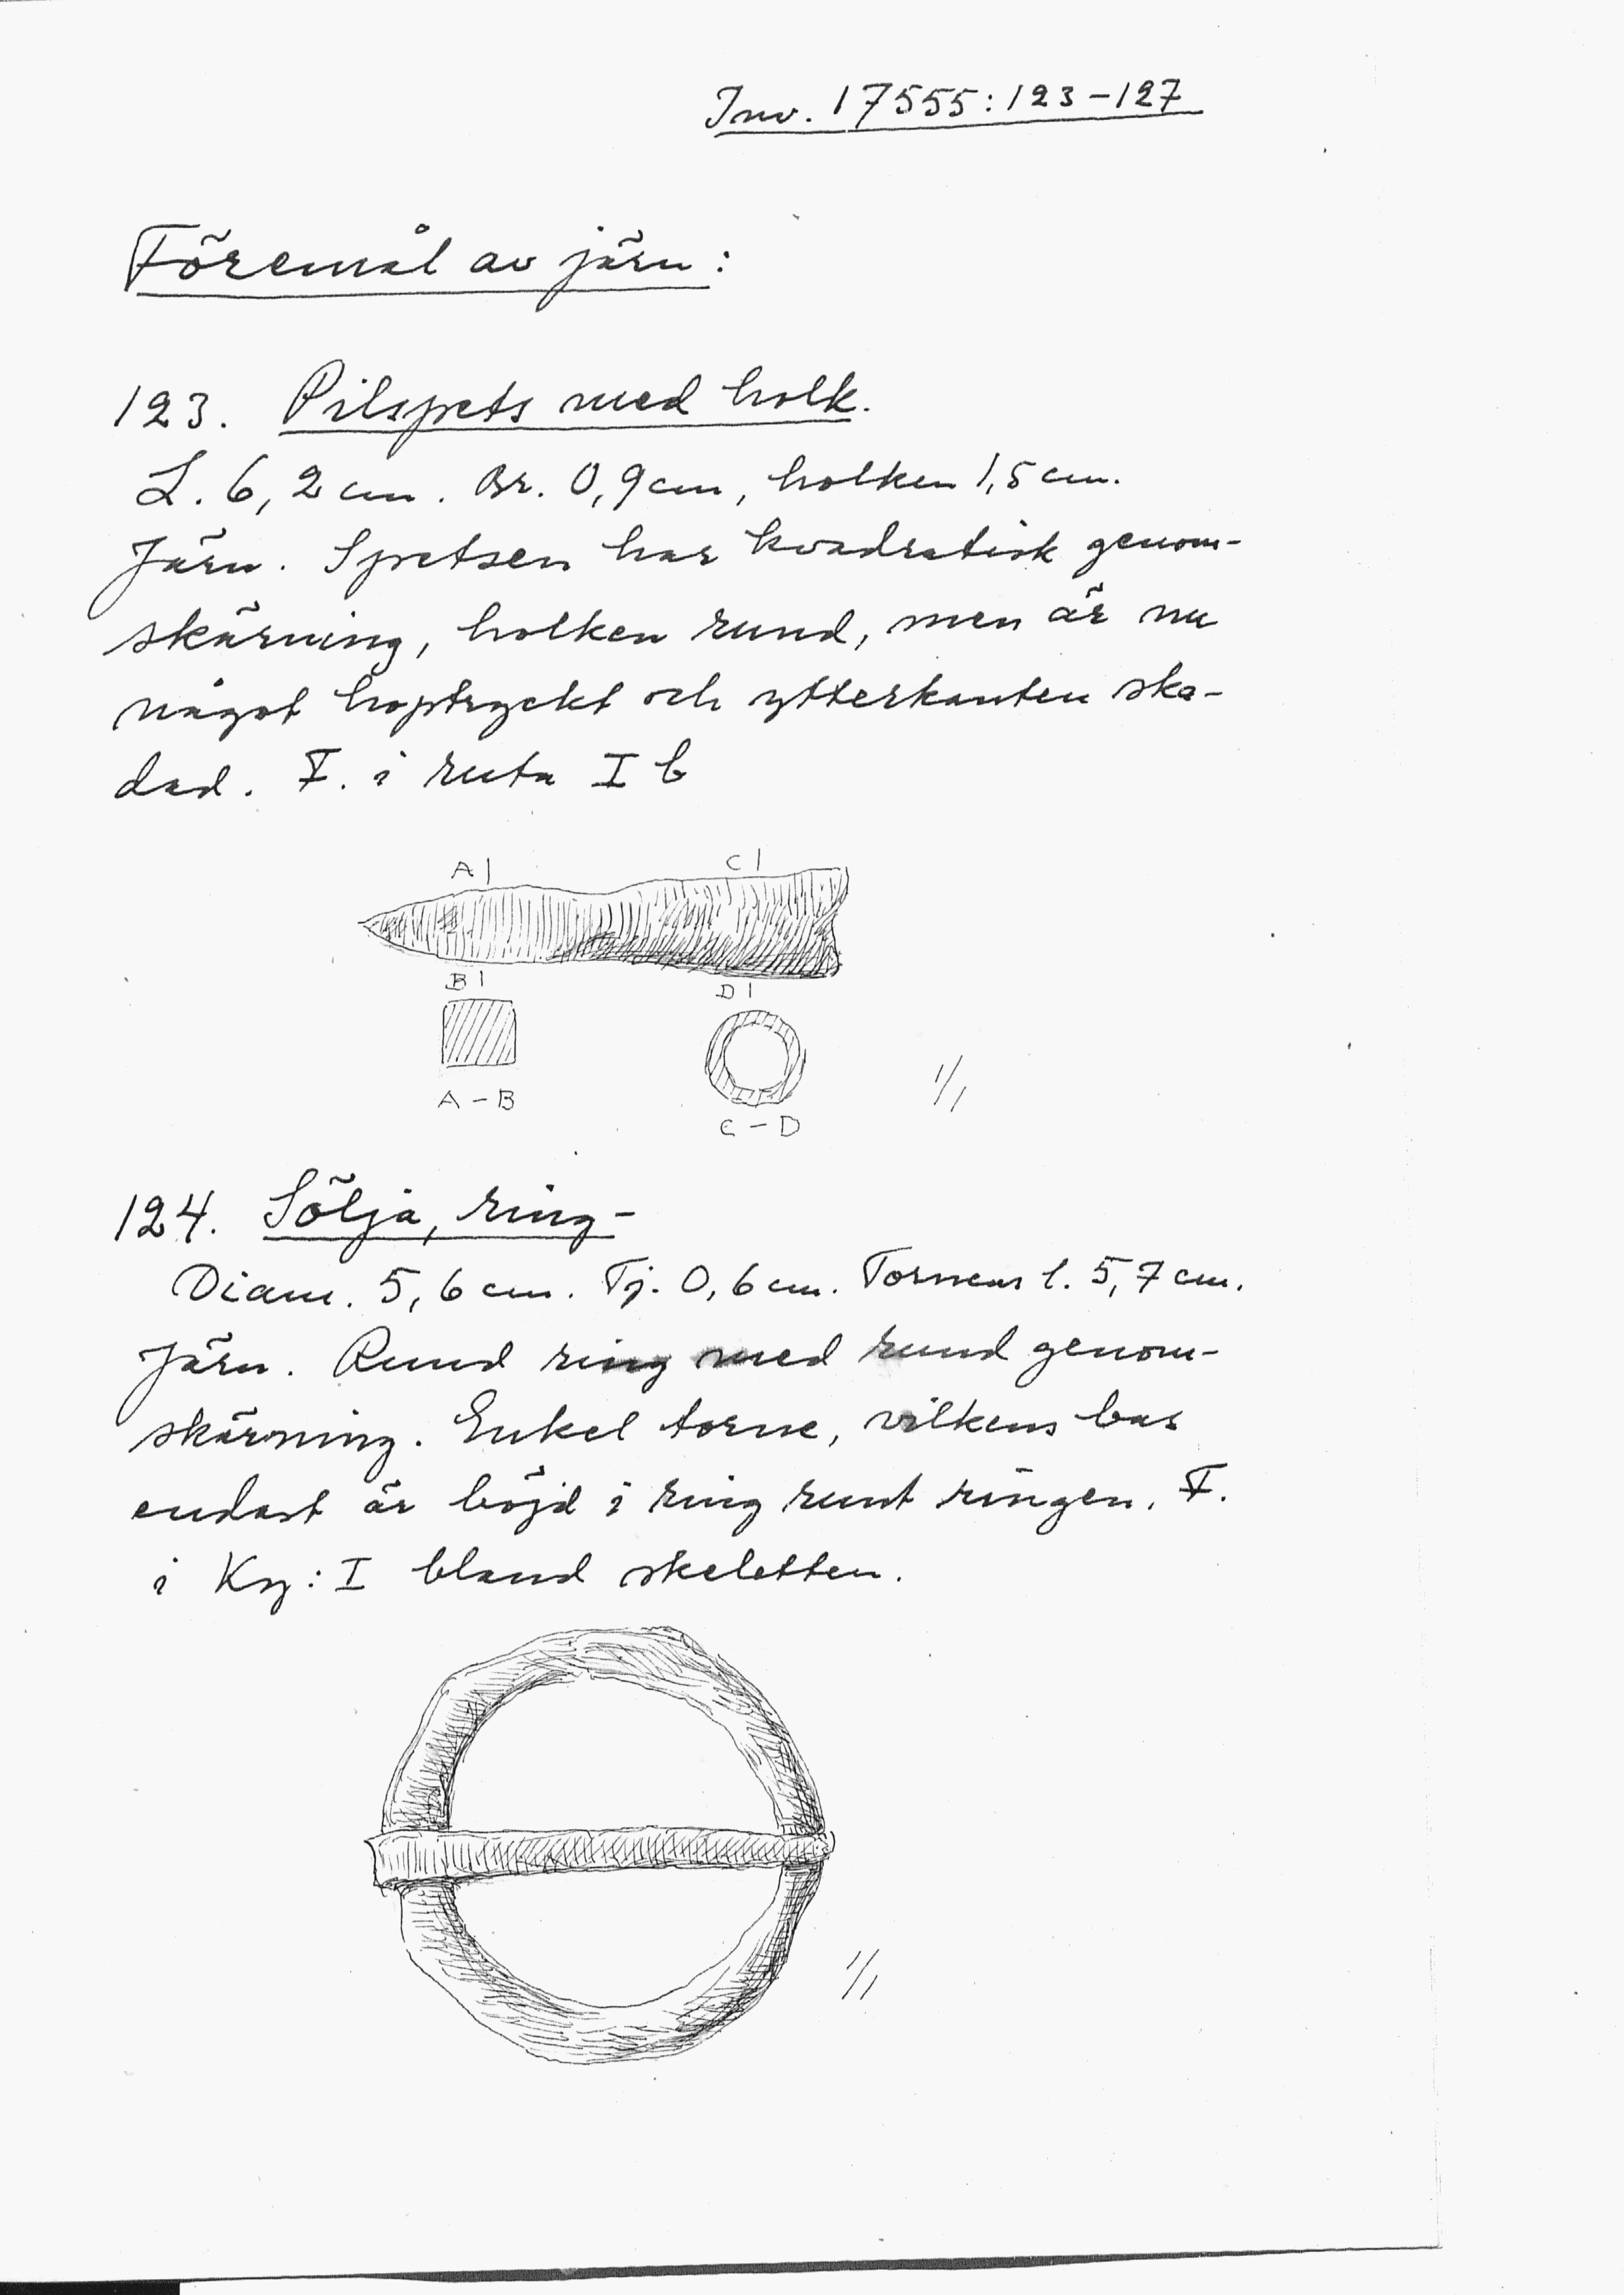 Inv. 17555:123-127
Föremål av järn:
123. Pilspets med holk.
L. 6,2 cm. Br. 0,9 cm, holken 1,5 cm.
Järn. Spetsen har kvadratisk genom-
skärning, holken rund, men är nu
något hoptryckt och ytterkanten ska-
dad. F. i ruta I b
A| C|
B| D|
A-B
C-D
1/1
124. Sölja, ring-
Diam. 5,6 cm. Tj. 0,6 cm. Tornens l. 5,7 cm.
Järn. Rund ring med rund genom-
skärning. Enkel torne, vilkens bas
endast är böjd i ring runt ringen. F.
i Ky: I bland skeletten.
1/1